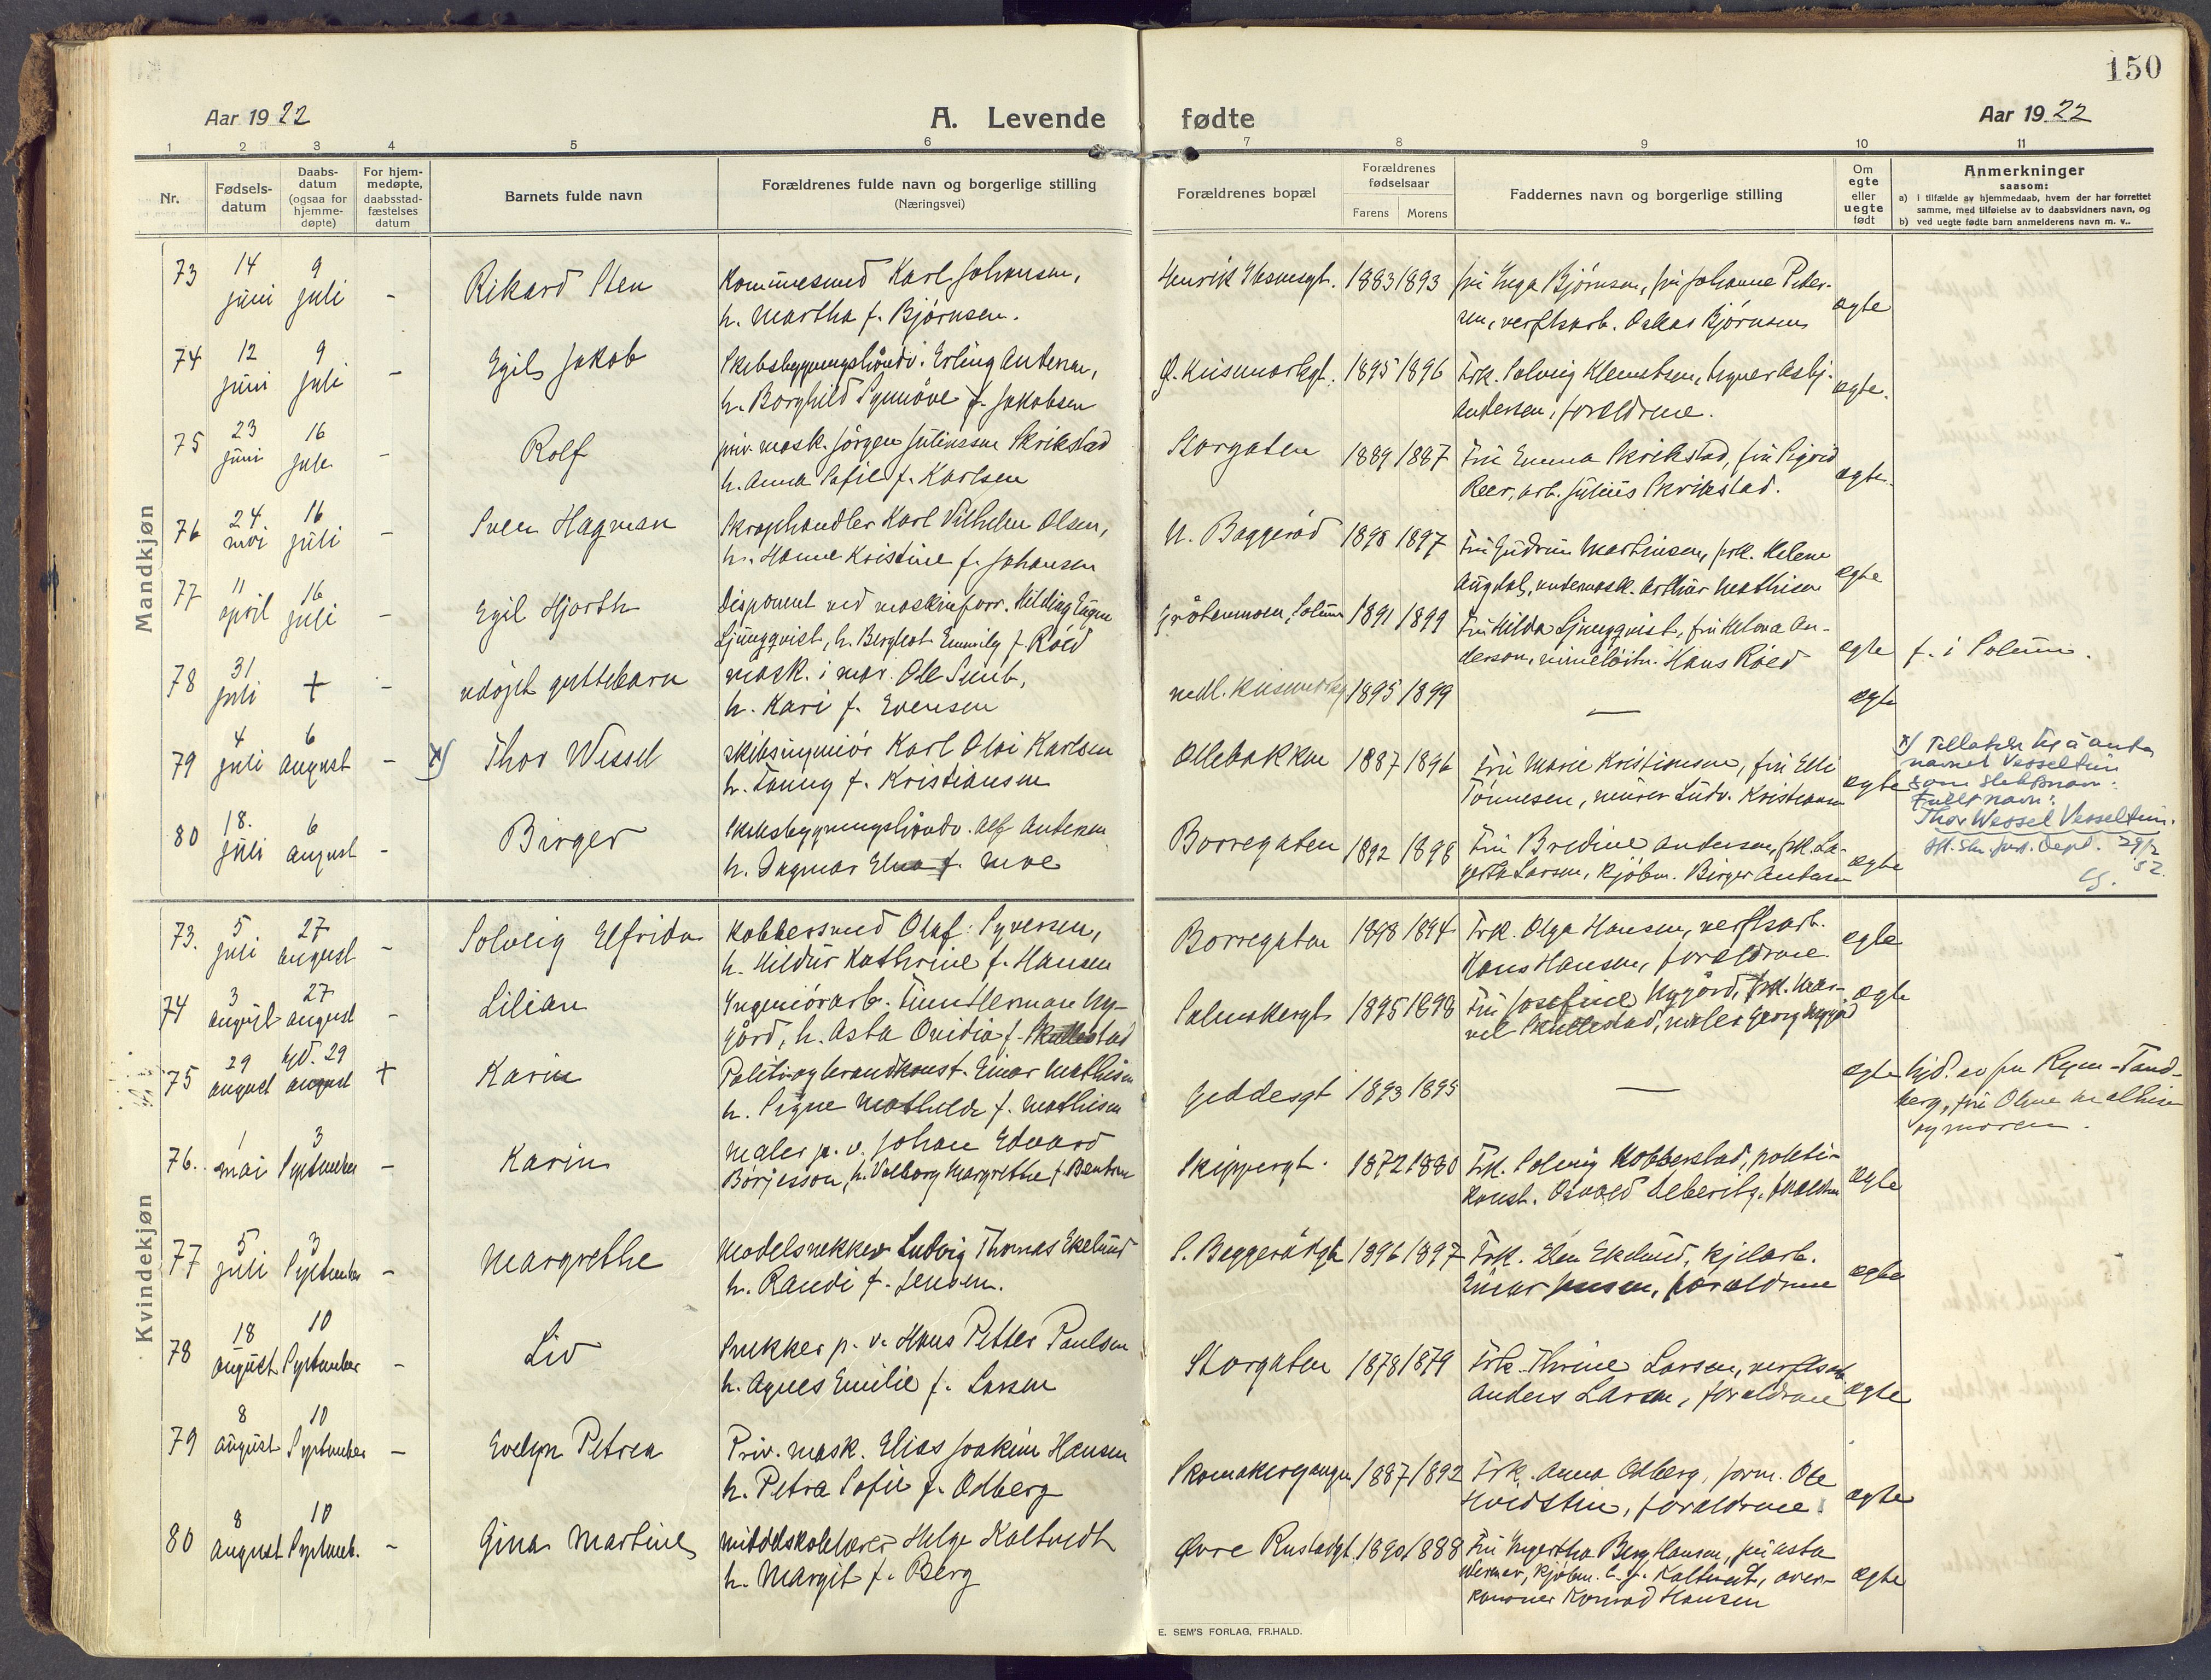 150
Aar 19 22
A. Levende fødte
Aar 19 22
1 2 3 4 5 6 7 8 9 10 11
Nr.
Fødsels-
datum
Daabs-
datum
(ogsaa for
hjemme-
døpte)
For hjem-
medøpte,
daabsstad-
fæstelses
datum
Barnets fulde navn
Forældrenes fulde navn og borgerlige stilling
(Næringsvei)
Forældrenes bopæl
Forældrenes
fødselsaar
Farens Morens
Faddernes navn og borgerlige stilling
Om
egte
eller
uegte
født
Anmerkninger
saasom:
a) i tilfælde av hjemmedaab, hvem der har forrettet
samme, med tilføielse av to daabsvidners navn, og
b) ved uegte fødte barn anmelderens navn m. v..
Mandkjøn
73 14 juni 9 juli - Rikard Sten
Karl Johansen,
h. Martha f. Bjørnsen.
Henrik Ibsensgt. 1883 1893
fru Inga Bjørnsen, fru Johanne Peder-
sen, verftsarb. Oskar Bjørnsen
egte
74 12 juni 9 juli - Egil Jakob
Skibsbygningshåndv. Erling Andersen,
h. Borghild Synnøve f. Jakobsen
1895 1896
Frk. Solveig Klemetsen, Asbj.
Andersen, forældrene.
egte.
75 23 juni 16 juli - Rolf
priv. mask. Jørgen Julinssen Skrikstad
h. Anna Sofie f. Karlsen
Storgaten 1889 1887
Fru Emma Skrikstad, fru Sigrid
Reer, arb. Julius Skrikstad.
egte.
76 24 mai 16 juli - Sven Hagman
Skraphandler Karl Vilhelm Olsen,
h. Hanne Kristine f. Johansen
N. Baggerød 1898 1897
Fru Gudrun Martinsen, frk. Helene
Augdal, undermask. Arthur Mathisen
egte
77 11 april 16 juli - Egil Hjorth
Disponent ved maskinforr. Hilding Eugen
Ljungqvist, h. Bergliot Emmily f. Røed
Solum 1891 1899
Fru Hilda Ljungqvist, fru Helena An-
derson, Hans Røed
egte f. i Solum.
78 31 juli + - udøpt guttebarn
mask. i mar. Ole Smib,
h. Kari f. Evensen
1895 1899 — egte
79 4 juli 6 august - x) Thor Wessel
skibsingeniør Karl Olai Karlsen
h. Fanny f. Kristiansen
Ollebakken 1887 1896
Fru Marie Kristiansen, fru Elli
Tønnesen, murer Ludv. Kristiansen
egte
x) Tillatelse til å anta
navnet Vesseltun
som slektsnavn.
Fullt navn:
Thor Wessel Vesseltun.
Just. Dept. 29/2
52.
80 18. juli 6 august - Birger
Skibsbygningshåndv. Alf Andersen
h. Dagmar Elna f. Moe
Borregaten 1892 1898
Fru Bredine Andersen, frk. La-
gertha Larsen, kjøbm. Birger Andersen
egte
Kvindekjøn
73. 5 juli 27 august - Solveig Elfrida
Kobbersmed Olaf Syversen,
h. Hildur Kathrine f. Hansen
Borregaten 1898 1894
Frk. Olga Hansen, verftsarb.
Hans Hansen, forældrene
egte
74 3 august 27 august - Lilian
Ingeniørarb. Herman Ny-
gård, h. Asta Ovidia f. Skullestad
1895 1898
Fru Josefine Nygård, frk. Mar-
Skullestad, maler Georg Nygård
egte
75 29 august hjd. 29 august + Karin
Politi og brandkonst. Einar Mathisen
h. Signe Mathilde f. Mathisen
Geddesgt 1893 1895 — egte
hjd. av fru Tand-
berg, fru Olene Mathisen
og moren.
76. 1 mai 3 September - Karin
Maler p. v. Johan Edvard
Börjesson, h. Valborg Margrethe f. Bentsen
Skippergt. 1872 1880
Frk. Solveig Kobberstad, politi-
konst. Osvald forældrene
egte
77 5 juli 3 September - Margrethe
Modelsnekker Ludvig Thomas Ekelund
h. Randi f. Jensen.
S. Baggerødgt 1896 1897
Frk. Elen Ekelund, kjelarb.
Einar Jensen, forældrene
egte
78 18 august 10 September - Liv
Snekker p. v. Hans Petter Paulsen
h. Agnes Emilie f. Larsen
Storgaten 1878 1879
Frk. Thrine Larsen, verftsarb
Anders Larsen, forældrene
egte
79 8 august 10 September - Evelyn Petrea
Priv. mask. Elias Joakim Hansen
h. Petra Sofie f. Odberg
Skomakergangen 1887 1892
Frk. Anna Odberg, form. Ole
Hvidsten, forældrene.
egte
80 8 august 10 Septemb. - Gina Martine
middelskolelærer Helge Kaltvedt
h. Margit f. Berg
Øvre Rustadgt. 1890 1888
Fru Ingertha Berg Hansen, fru Asta
Werner, kjøbm. Kaltvedt, over-
kanoner Konrad Hansen
egte
E. SEM'S FORLAG, FR.HALD.